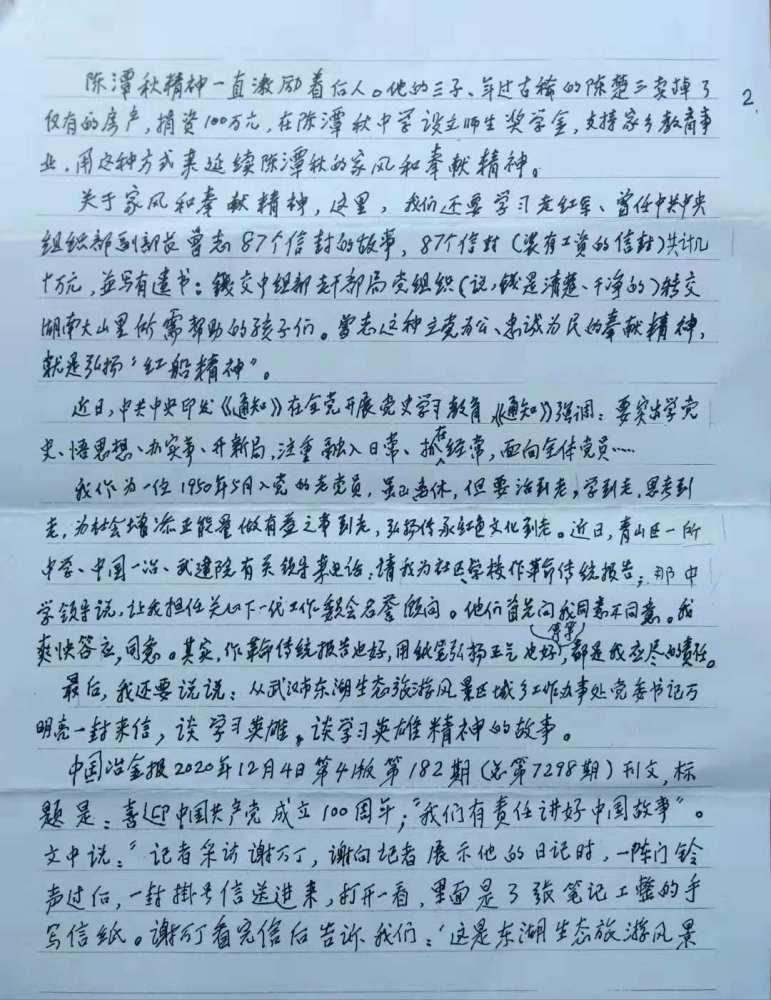 2.
陈潭秋精神一直激励着后人。他的三子、年过古稀的陈楚三卖掉了
仅有的房产，捐资100万元，在陈潭秋中学设立师生奖学金，支持家乡教育事
业，用这种方式来延续陈潭秋的家风和奉献精神。
关于家风和奉献精神，这里，我们还要学习老红军、曾任中共中央
组织部副部长曾志87个信封的故事，87个信封（装有工资的信封）共计几
十万元，並写有遗书：钱交中组部老干部局党组织（说，钱是清楚、干净的）转交
湖南大山里所需帮助的孩子们。曾志这种立党为公、忠诚为民的奉献精神，
就是弘扬“红船精神”。
近日，中共中央印发《通知》在全党开展党史学习教育，《通知》强调：要突出学党
史、悟思想、办实事、开新局，注重融入日常、抓在经常，面向全体党员……
我作为一位1950年5月入党的老党员，虽已离休，但要活到老，学到老，思考到
老，为社会增添正能量做有益之事到老，弘扬传承红色文化到老。近日，青山区一所
中学、中国一冶、武建院有关领导来电话，请我为社区学校作革命传统报告；那中
学领导说，让我担任关心下一代工作委员会名誉顾问。他们首先问我同意不同意。我
爽快答应，同意。其实，作革命传统报告也好，用纸笔弘扬正气也好，等等，都是我应尽的责任。
最后，我还要说说：从武汉市东湖生态旅游风景区城乡工作办事处党委书记万
明亮一封来信，谈学习英雄，谈学习英雄精神的故事。
中国冶金报2020年12月4日第4版第182期（总第7298期）刊文，标
题是：喜迎中国共产党成立100周年；“我们有责任讲好中国故事”。
文中说：“记者采访谢万丁，谢向记者展示他的日记时，一阵门铃
声过后，一封掛号信送进来，打开一看，里面是3张笔记工整的手
写信纸。谢万丁看完信后告诉我们：‘这是东湖生态旅游风景